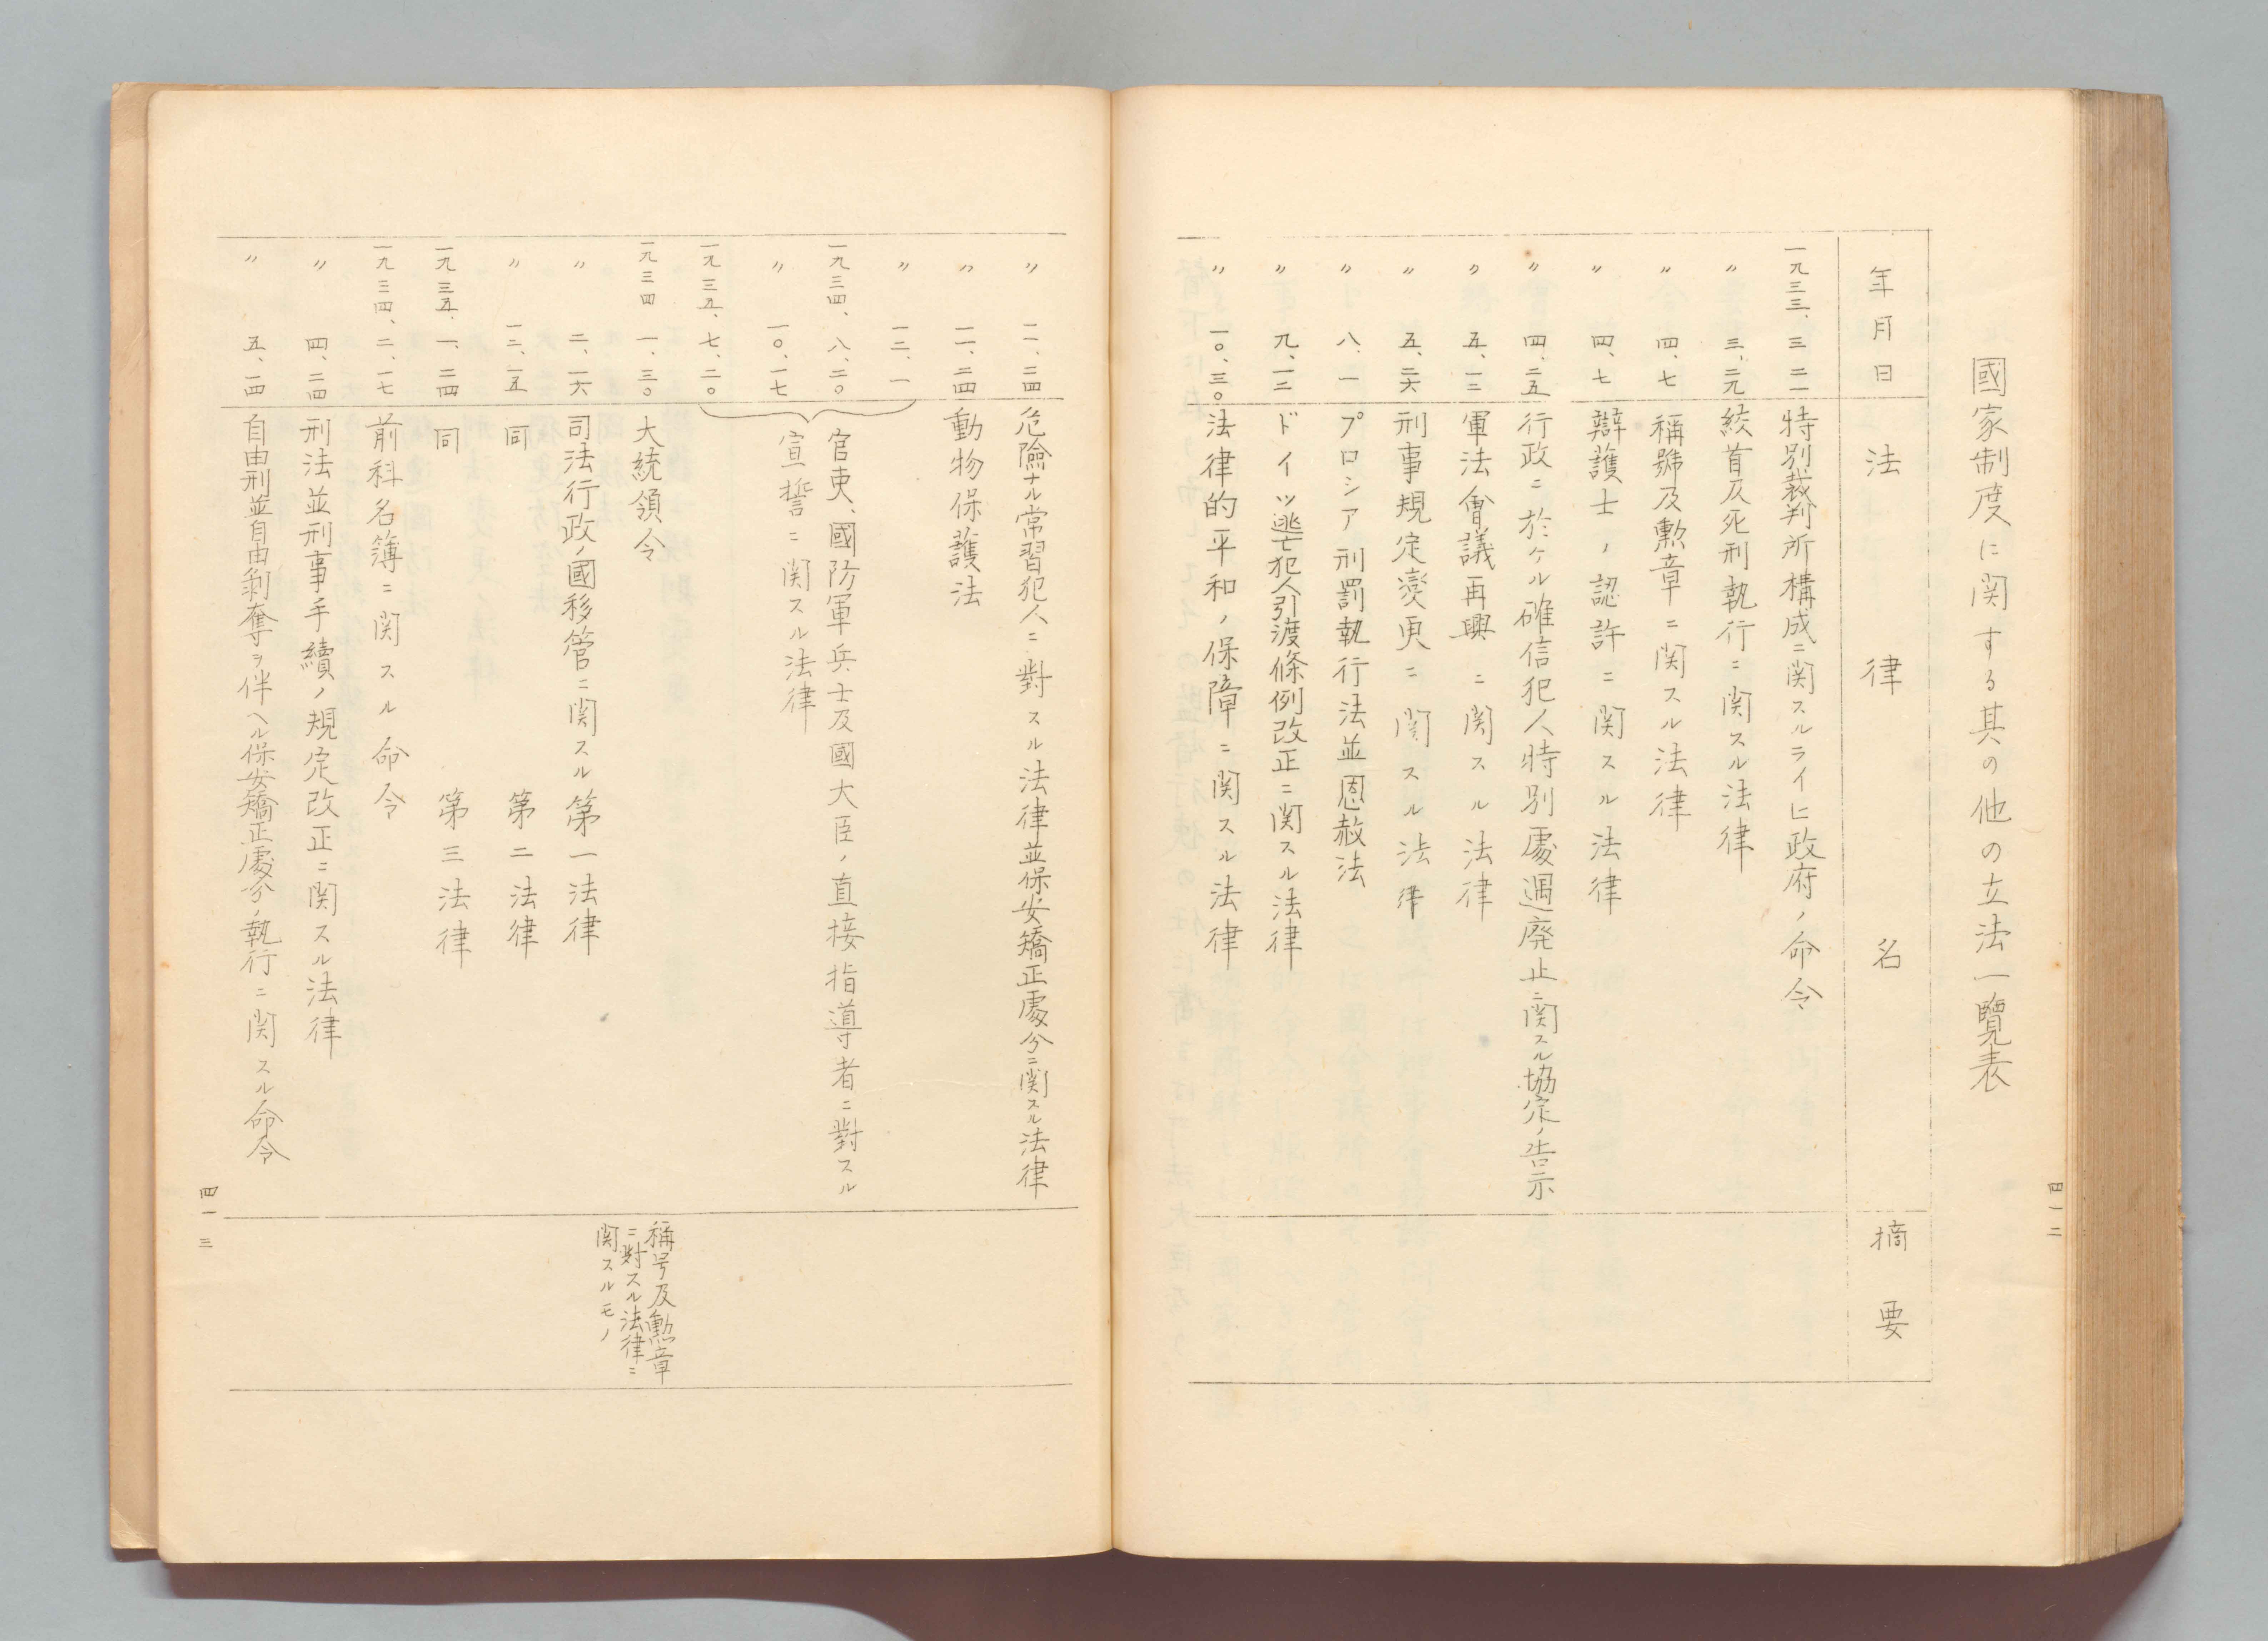 國家制度に関する其の他の立法一覽表
年月日 法律名 摘要
一九三三、三、二一 特別裁判所構成ニ関スルライヒ政府ノ命令
〃 三、二九 絞首及死刑執行ニ関スル法律
〃 四、七 稱號及勲章ニ関スル法律
〃 四、七 辯護士ノ認許ニ関スル法律
〃 四、二五 行政ニ於ケル確信犯人特別處遇廃止ニ関スル協定ノ告示
〃 五、一二 軍法會議再興ニ関スル法律
〃 五、二六 刑事規定変更ニ関スル法律
〃 八、一 プロシア刑罰執行法並恩赦法
〃 九、一二 ドイツ逃亡犯人引渡條例改正ニ関スル法律
〃 一〇、三〇 法律的平和ノ保障ニ関スル法律
四一二
〃 一一、二四 危險ナル常習犯人ニ對スル法律並保安矯正處分ニ関スル法律
〃 一一、二四 動物保護法
〃 一二、一
一九三四、八、二〇 官吏、國防軍兵士及國大臣ノ直接指導者ニ對スル
〃 一〇、一七 宣誓ニ関スル法律
一九三五、七、二〇
一九三四 一、三〇 大統領令 稱号及勲章
ニ對スル法律ニ
関スルモノ
〃 二、一六 司法行政ノ國移管ニ関スル第一法律
〃 一二、五 同 第二法律
一九三五、一、二四 同 第三法律
一九三四、二、一七 前科名簿ニ関スル命令
〃 四、二四 刑法並刑事手續ノ規定改正ニ関スル法律
〃 五、一四 自由刑並自由剥奪ヲ伴ヘル保安矯正處分ノ執行ニ関スル命令
四一三